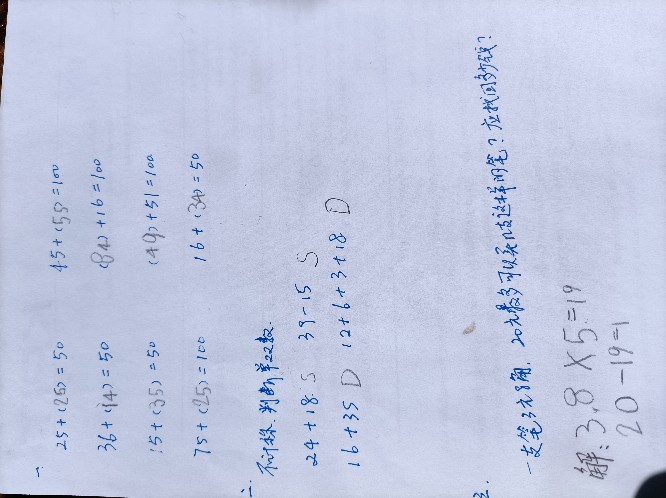 一
25+(25)=50 45+(55)=100
36+(14)=50 (84)+16=100
15+(35)=50 (49)+51=100
75+(25)=100 16+(34)=50
二. 不计算, 判断单双数.
24+18 S 39-15 S
16+35 D 12+6+3+18 D
三.
一支笔3元8角. 20元最多可以买几支这样的笔? 应找回多少钱?
解: 3.8×5=19
20-19=1